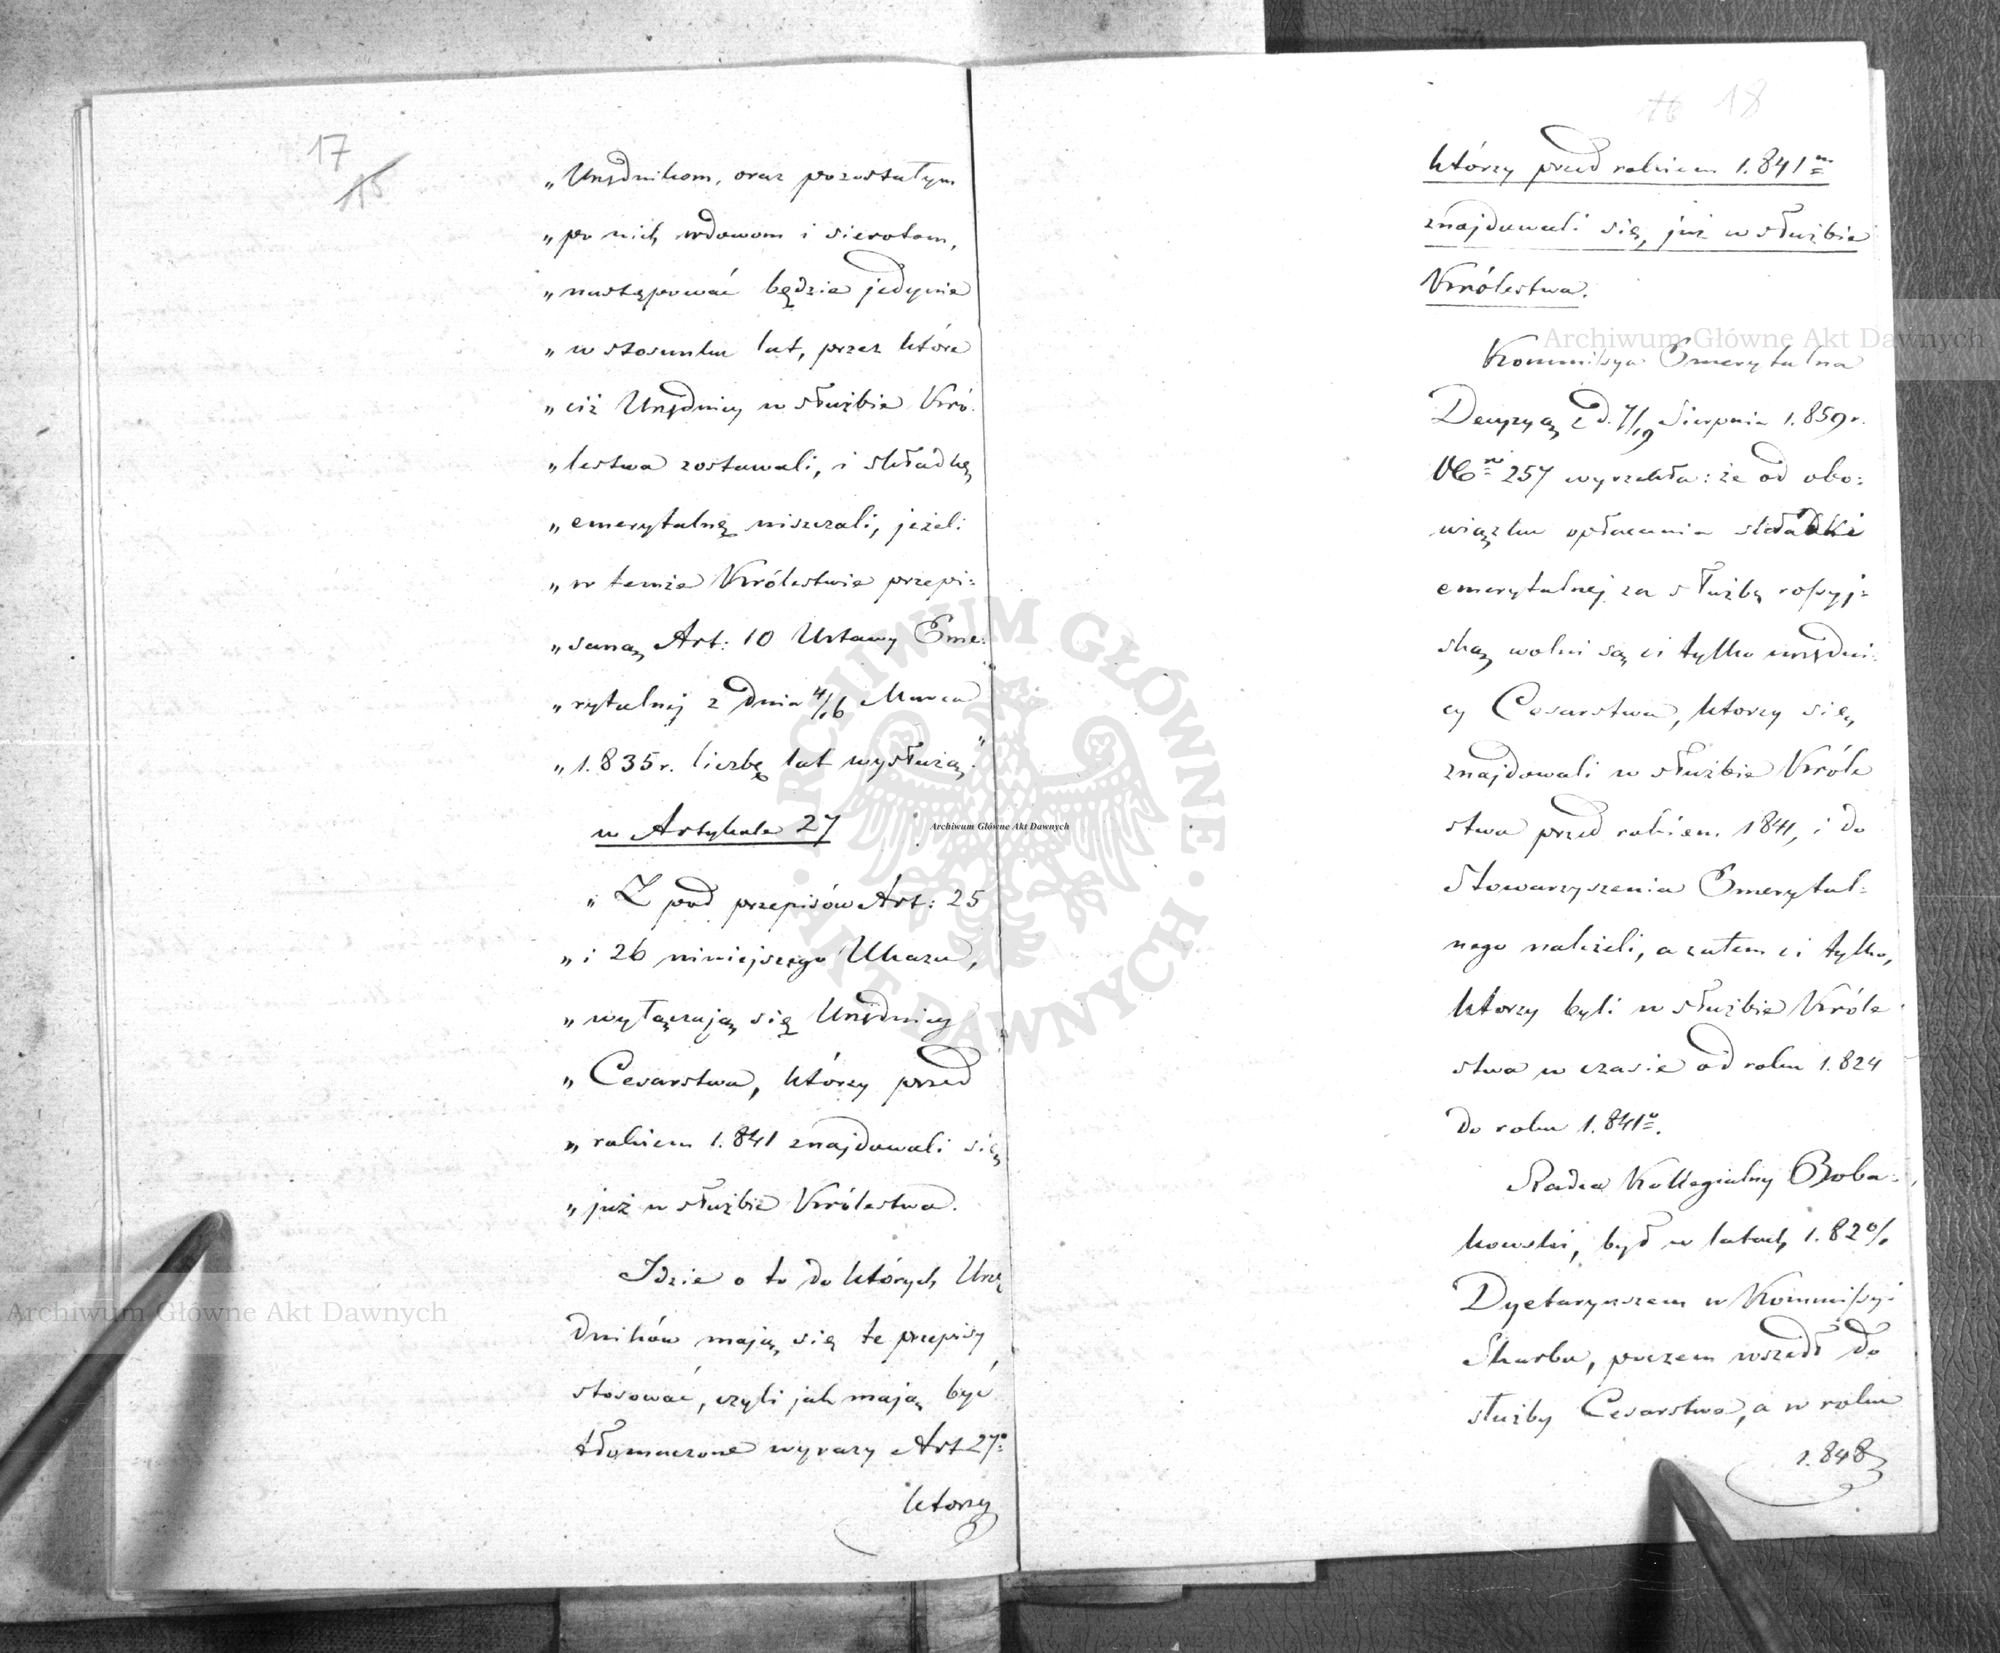 17
15
„Urzędnikom, oraz pozostałym
„po nich wdowom i sierotom,
„następować będzie jedynie
„w stosunku lat, przez które
„ciż Urzędnicy w służbie Kró-
„lestwa zostawali, i składkę
„emerytalną niszczali, jeżeli
„w temże Królestwie przepi-
„saną Art: 10 Ustawy Eme-
„rytalnej z dnia 4/16 Marca
„1.835 r. liczbę lat wysłużą."
w Artykule 27
„Z pod przepisów Art: 25
„i 26 niniejszego Ukazu,
„wyłączają się Urzędnicy
„Cesarstwa, którzy przed
„rokiem 1.841 znajdowali się
„już w służbie Królestwa.
Idzie o to do których Urzę
dników mają się te przepisy
stosować, czyli jak mają być
tłomaczone wyrazy Art 27o
ktorzy
16 18
którzy przed rokiem 1.841m
znajdowali się, już w służbie
Królestwa.
Kommissya Emerytalna
Decyzyą z d. 7/19 Sierpnia 1.859 r.
No 257 wyrzekła: że od obo-
wiązku opłacania składki
emerytalnej za służbę rossyj-
ską, wolni są ci tylko urzędni-
cy Cesarstwa, ktorzy się
znajdowali w służbie Króle
stwa przed rokiem 1841, i do
Stowarzyszenia Emerytal-
nego należeli, a zatem ci tylko,
ktorzy byli w służbie Króle
stwa w czasie od roku 1.824
do roku 1.841o.
Radca Kollegialny Boba-
kowski, był w latach 1.820/1
Dyetaryuszem w Kommissyi
Skarbu, poczem wszedł do
służby Cesarstwa, a w roku
1.848
Archiwum Główne Akt Dawnych
Archiwum Główne Akt Dawnych
Archiwum Główne Akt Dawnych
ARCHIWUM GŁÓWNE AKT DAWNYCH